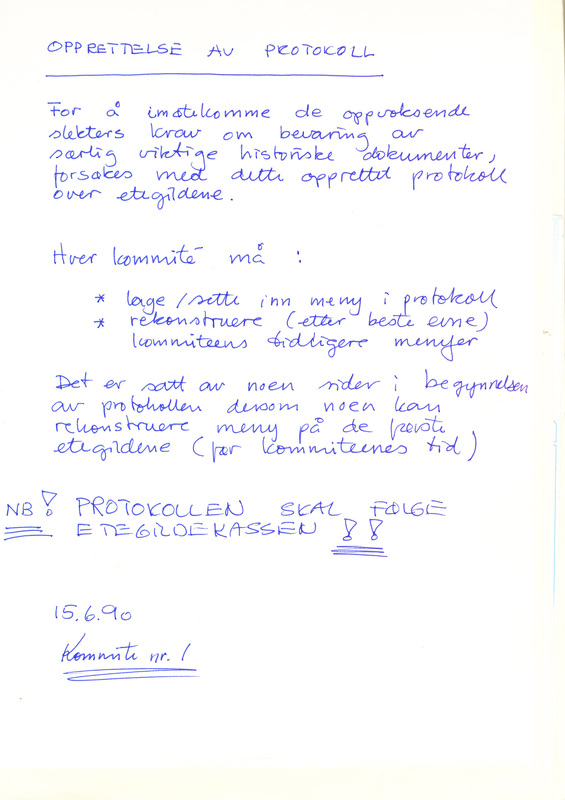 OPPRETTELSE AV PROTOKOLL
For å imøtekomme de oppvoksende
slekters krav om bevaring av
særlig viktige historiske dokumenter,
forsøkes med dette opprettet protokoll
over etegildene.
Hver kommité må :
* lage / sette inn meny i protokoll
* rekonstruere (etter beste evne)
kommiteens tidligere menyer
Det er satt av noen sider i begynnelsen
av protokollen dersom noen kan
rekonstruere meny på de første
etegildene (før kommiteenes tid)
NB! PROTOKOLLEN SKAL FØLGE
ETEGILDEKASSEN !!
15.6.90
Kommite nr. 1